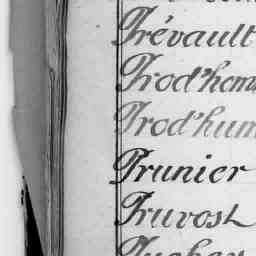 Prévault
Prod'hom
Prod'hum
Prunier
Pruvost